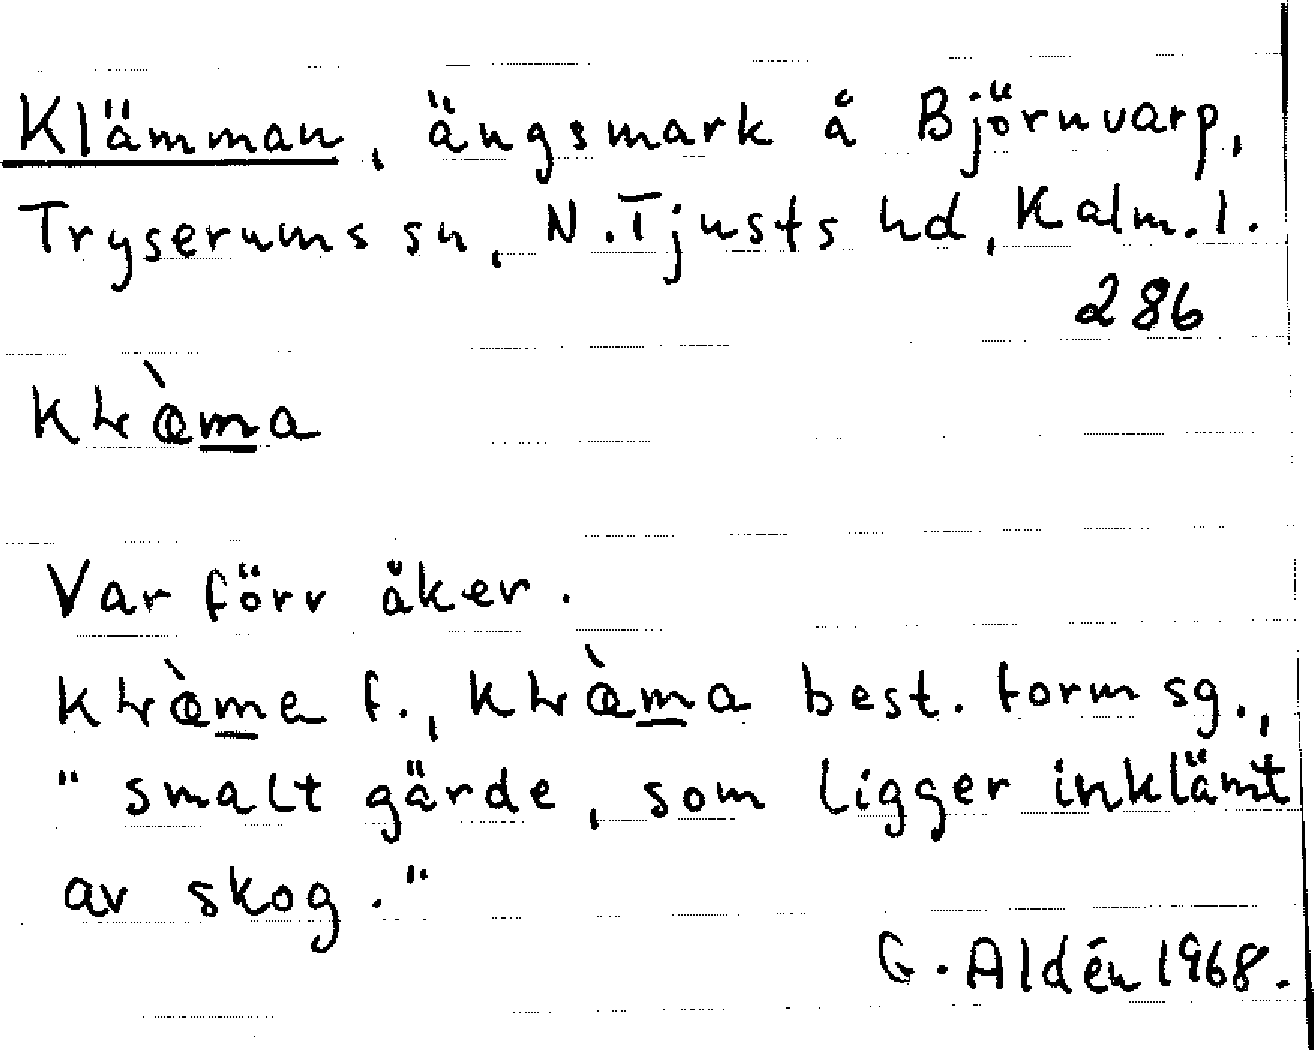 Klämman, ängsmark å Björnvarp,
Tryserums sn, N. Tjusts hd, Kalm. l.
286
Var förr åker.
f., best. form sg.,
"smalt gärde, som ligger inklämt
av skog."
G. Aldén 1968.